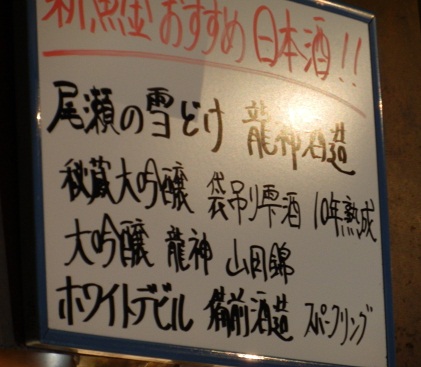 おすすめ日本酒!!
尾瀬の雪どけ 龍神酒造
秘蔵大吟醸 袋吊り雫酒 10年熟成
大吟醸 龍神 山田錦
ホワイトデビル 備前酒造 スパークリング